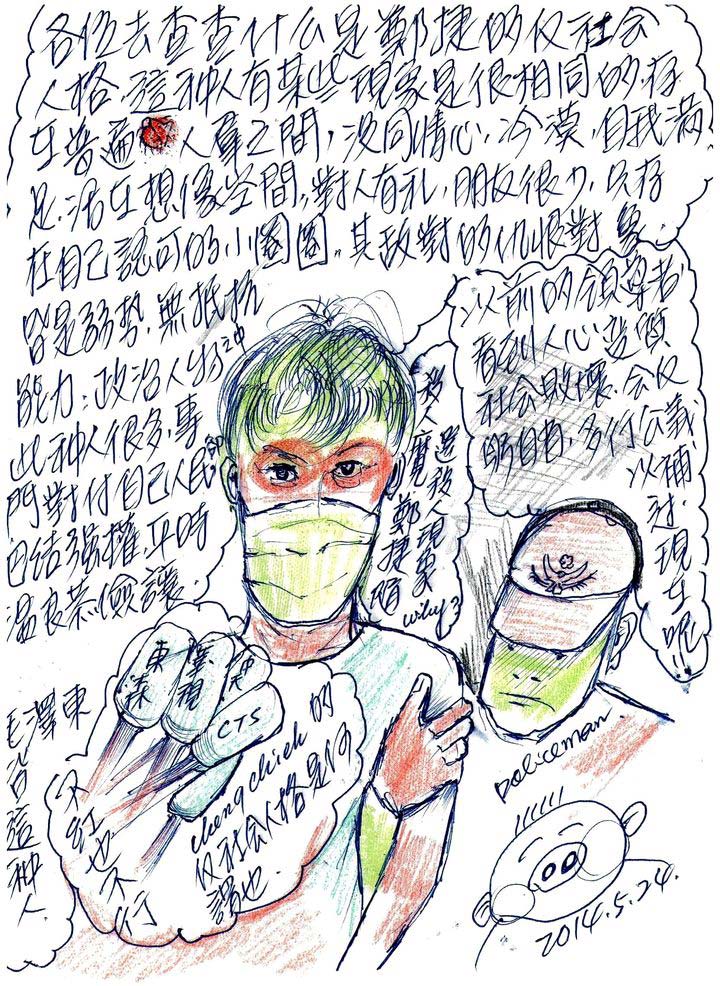 各位去查查什么是鄭捷的仅社会
人格.這种人有某些現象是很相同的.存
在普遍 人羣之間,没同情心.冷漠,自我滿
足.活在想像空間,對人有礼,朋友很少,只存
在自己認可的小圈圈。其敵對的仇恨對象
皆是弱勢.無抵抗
能力:政治人物中
此种人很多.專
門對付自己人民.却
巴結强權.平時
温良恭儉讓.
以前的領尊者
看到人心變傾
社会敗壞.会仅
躬自省,多行公義
以補
过.現
在呢!!
殺人魔 鄭捷
這殺人現象
why?
東森
冀現
中天
CTS
不
紅也不行
cheng chieh 的
仅社会人格是何
謂也.
毛澤東
言這种人.
policeman.
2014.5.24.